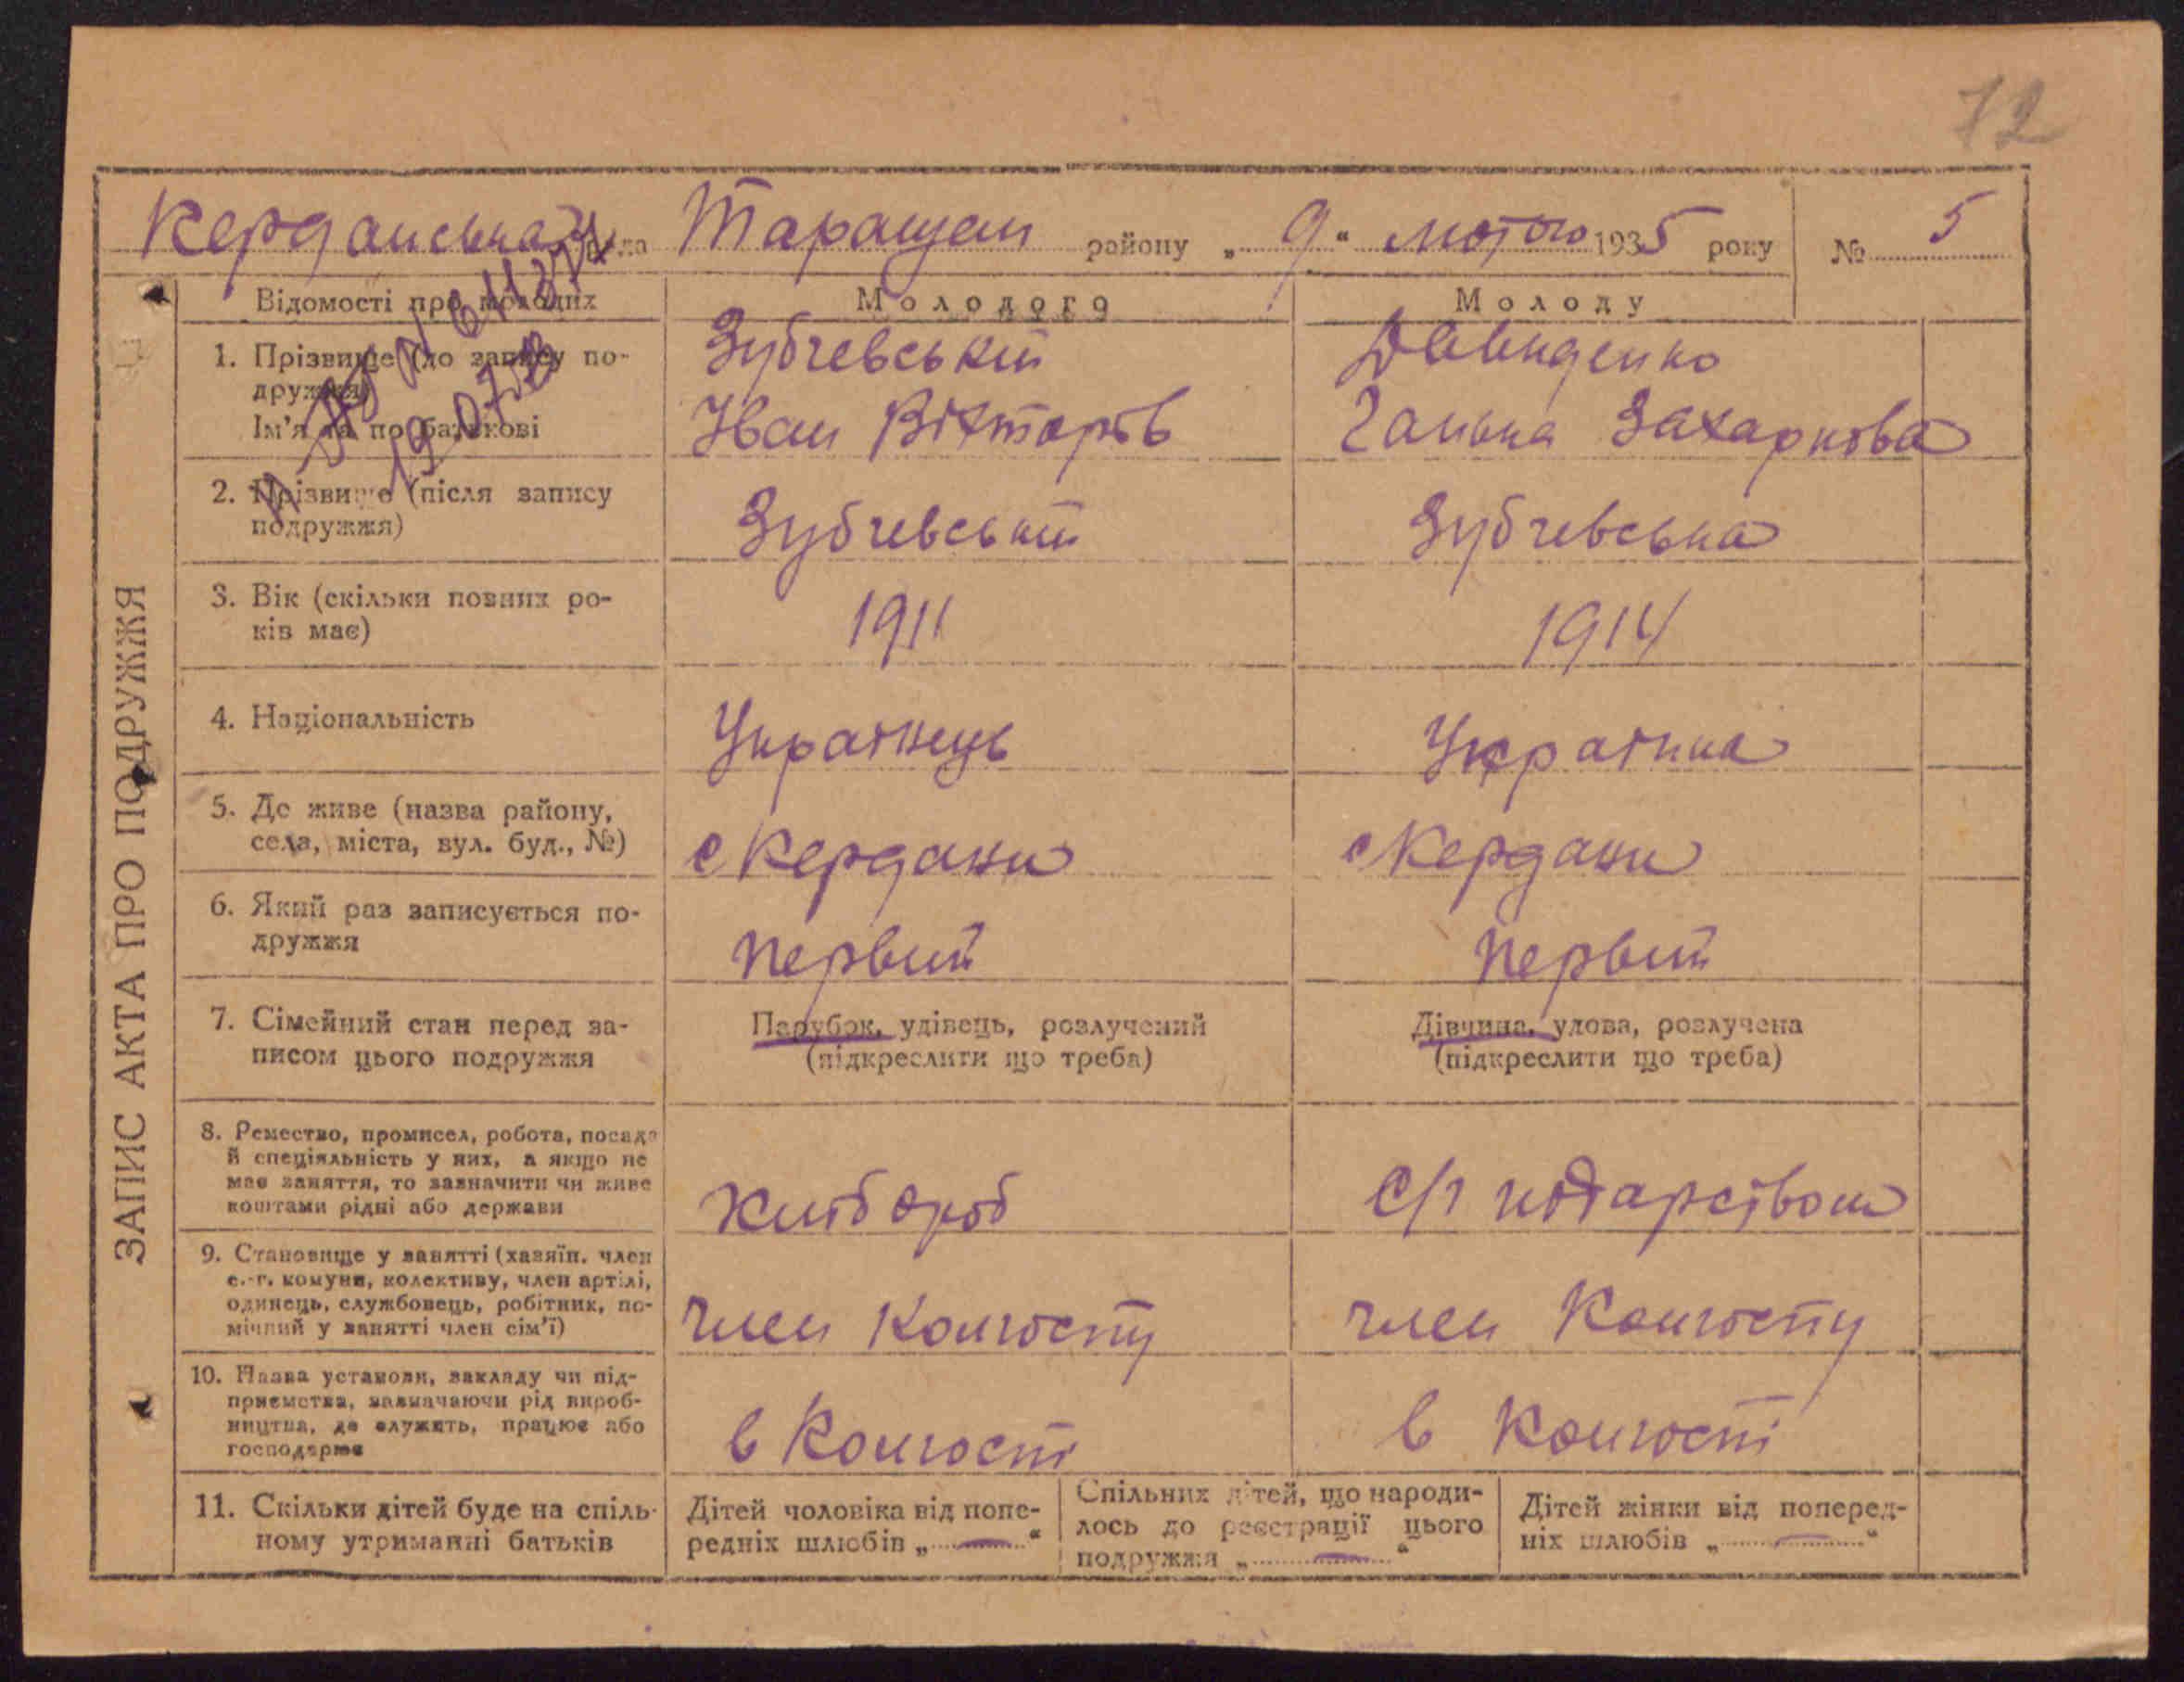 72
Керданська рада Таращан району „9“ лютого 1935 року № 5
Відомості про молодих Молодого Молоду
1. Прізвище (до запису по-
дружжя)
Зубчевський Давиденко
Ім'я та по батькові Іван Вікторов Ганька Захаркова
2. Прізвище (після запису
подружжя)
Зубчевський Зубчевська
3. Вік (скільки повних ро-
ків має)
1911 1914
4. Національність Українець Українка
5. Де живе (назва району,
села, міста, вул. буд., №)
с Кердани с Кердани
6. Який раз записується по-
дружжя
первий первий
7. Сімейний стан перед за-
писом цього подружжя
Парубок, удівець, розлучений
(підкреслити що треба)
Дівчина, удова, розлучена
(підкреслити що треба)
8. Ремество, промисел, робота, посада
й спеціяльність у них, а якщо не
має заняття, то зазначити чи живе
коштами рідні або держави
хлібороб с/г
9. Становище у занятті (хазяїн, член
с.-г. комуни, колективу, член артілі,
одинець, службовець, робітник, по-
мічний у занятті член сім'ї)
член Колгоспу член Колгоспу
10. Назва установи, закладу чи під-
приємства, зазначаючи рід вироб-
ництва, де служить, працює або
господарює
в Колгоспі в Колгоспі
11. Скільки дітей буде на спіль-
ному утриманні батьків
Дітей чоловіка від попе-
редніх шлюбів „—“
Спільних дітей, що народи-
лось до реєстрації цього
подружжя „—“
Дітей жінки від поперед-
ніх шлюбів „—“
ЗАПИС АКТА ПРО ПОДРУЖЖЯ